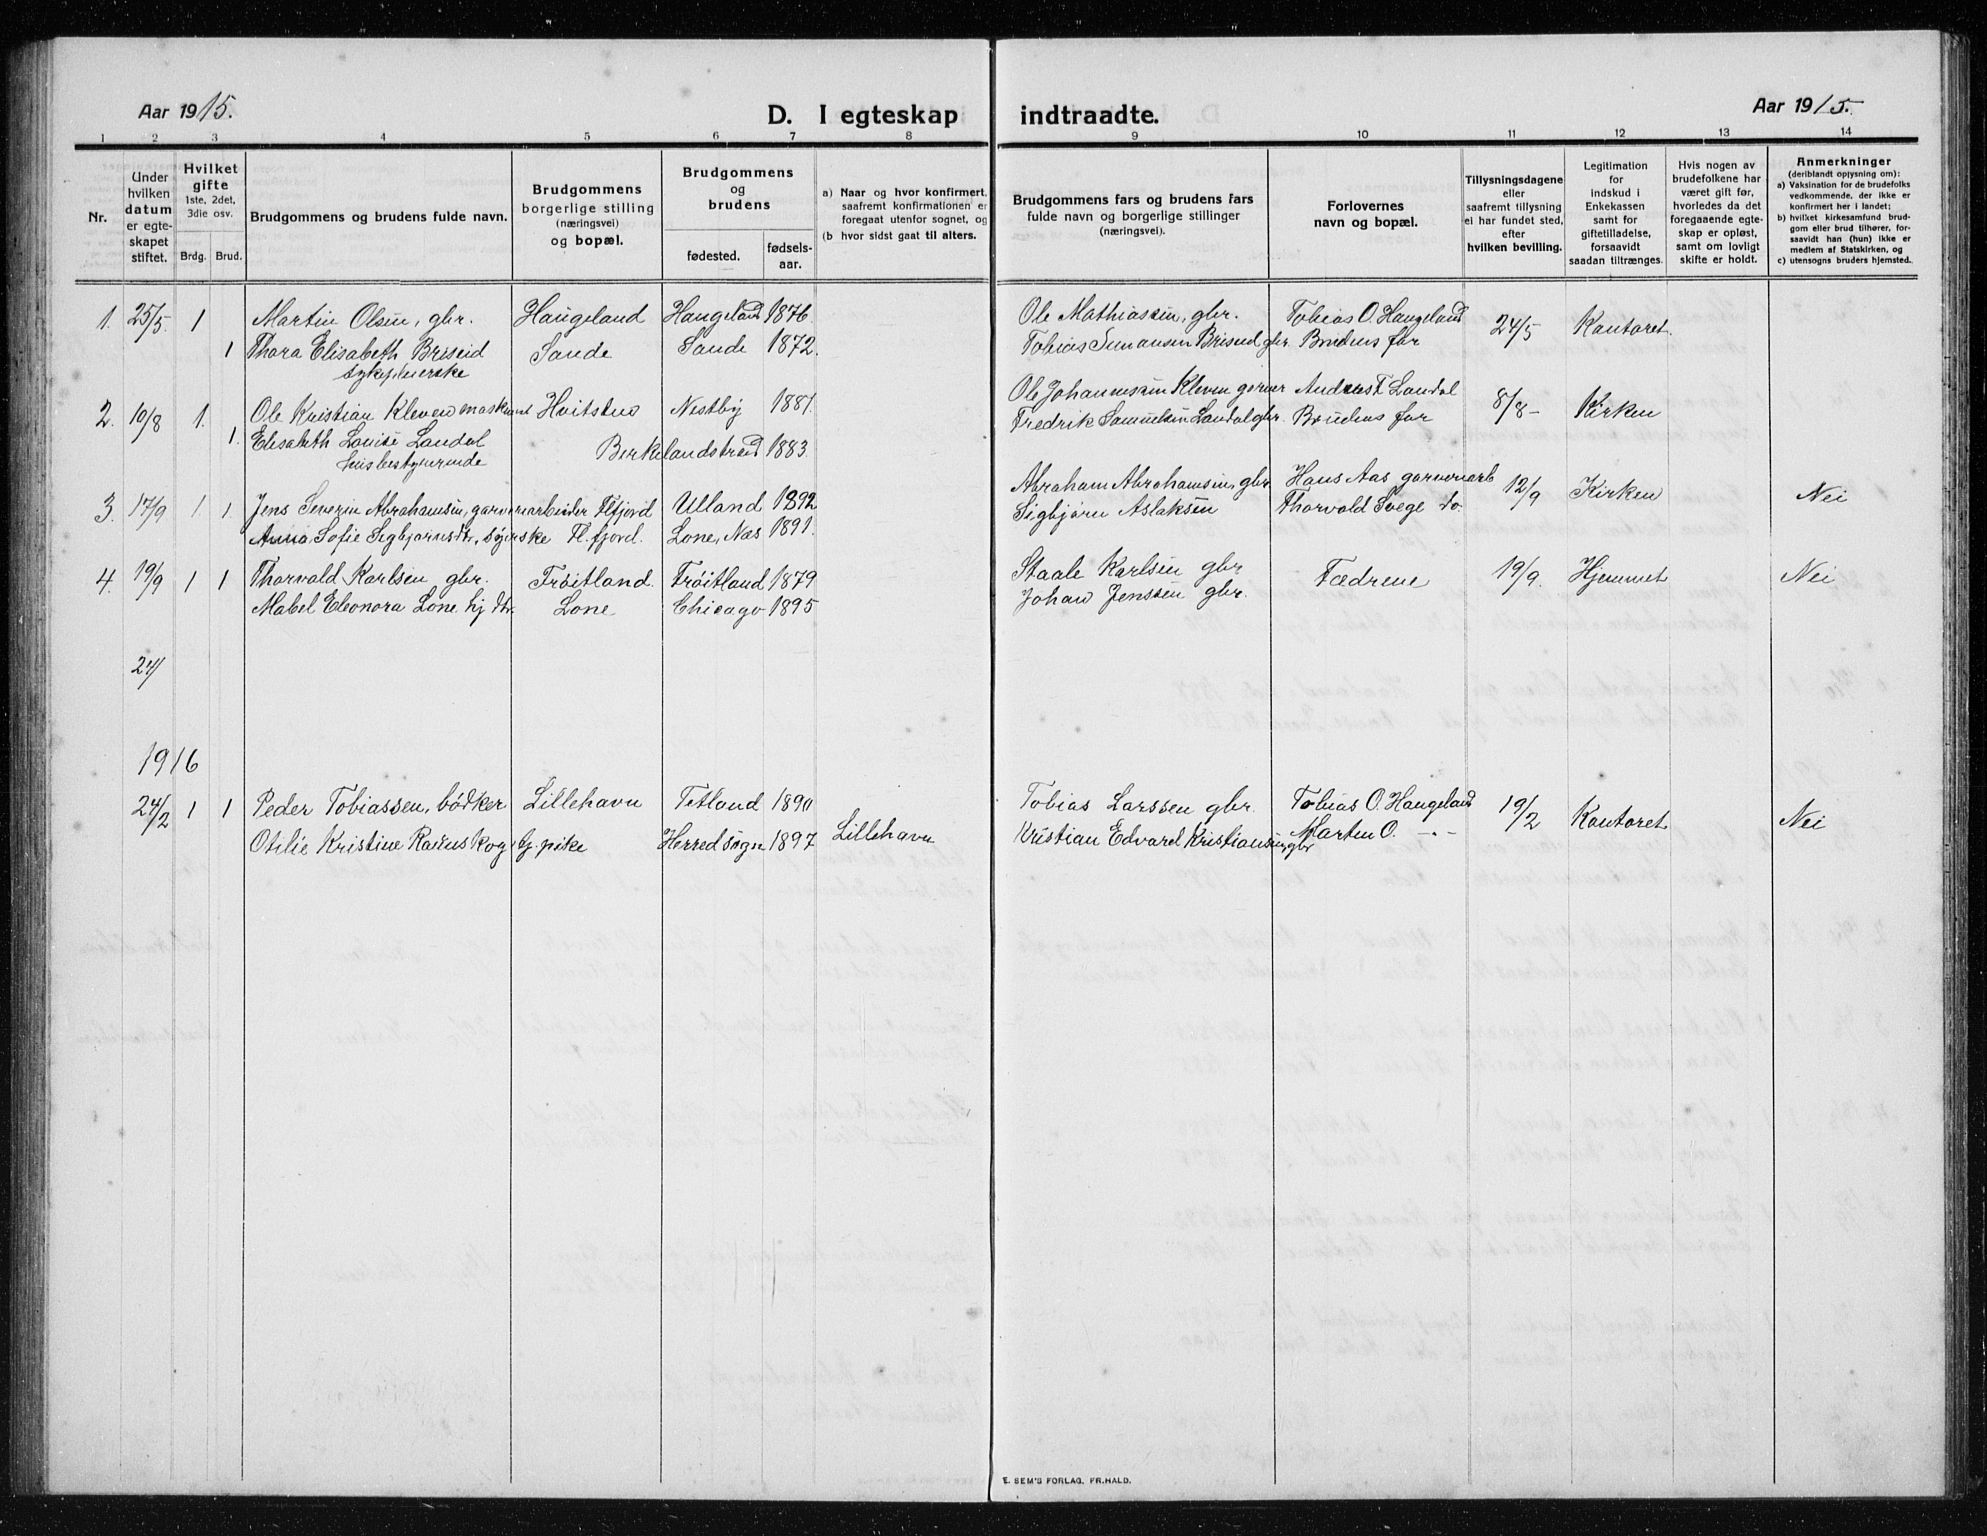 Aar 1915.
D. I egteskap indtraadte.
Aar 1915.
1 2 3 4 5 6 7 8 9 10 11 12 13 14
Nr.
Under hvilken datum er egteskapet stiftet.
Hvilket gifte 1ste, 2det, 3die osv.
Brdg. Brud.
Brudgommens og brudens fulde navn.
Brudgommens borgerlige stilling (næringsvei) og bopæl.
Brudgommens og brudens
fødested.
fødselsaar.
a) Naar og hvor konfirmert, saafremt konfirmationen er foregaat utenfor sognet, og
(b hvor sidst gaat til alters.
Brudgommens fars og brudens fars fulde navn og borgerlige stillinger (næringsvei).
Forlovernes navn og bopæl.
Tillysningsdagene eller saafremt tillysning ei har fundet sted, efter hvilken bevilling.
Legitimation for indskud i Enkekassen samt for giftetilladelse, forsaavidt saadan tiltrænges.
Hvis nogen av brudefolkene har været gift før, hvorledes da det foregaaende egteskap er opløst, samt om lovligt skifte er holdt.
Anmerkninger (deriblandt opysning om):
a) Vaksination for de brudefolks vedkommende, der ikke er konfirmert her i landet;
b) hvilket kirkesamfund brudgom eller brud tilhører, forsaavidt han (hun) ikke er medlem af Statskirken, og
c) utensogns bruders hjemsted.
1. 25/5 1 Martin Olsen, gbr. Haugeland Haugeland 1876. Ole Mathiassen, gbr. Tobias O. Haugeland 24/5 Kontoret.
1 Thora Elisabeth Briseid Sande Sande 1872. Tobias Simonsen Briseid gbr. Brudens far
sykepleierske
2. 10/8 1. Ole Kristian Kleven Nestby 1881. Ole Johannessen Kleven Landal 8/8 - Kirken
1. Elisabeth Louise Landal Berkelandstreid 1883. Fredrik Samuelsen Landal gbr. Brudens far
husbestyrerinde
3. 17/9 1 1 Jens Severin Abrahamsen, garveriarbeider Flfjord Ulland 1892 Abraham Abrahamsen, gbr. Hans Aas garveriarb 12/9 Kirken Nei
Anna Sofie Sigbjørnsdtr., syerske Fl.fjord. Lone, Næs 1891. Sigbjørn Aslaksen Thorvald Svege do.
4. 19/9 1 1 Thorvald Karlsen gbr. Frøitland. Frøitland 1879 Staale Karlsen gbr Fædrene 19/9. Hjemmet Nei
Mabel Eleonora Lone hj. dtr. Lone Chicago 1895 Johan Jenssen gbr.
24/
1916
24/2 1 1 Peder Tobiassen, bødker Lillehavn Tetland 1890 Tobias Larssen gbr. Tobias O. Haugeland 19/2 Kontoret Nei
Otilie Kristine tj. pike Herred sogn 1897 Lillehavn Kristian Edvard Kristiansen, gbr Marten O. -"-
E. SEM'S FORLAG, FR.HALD.